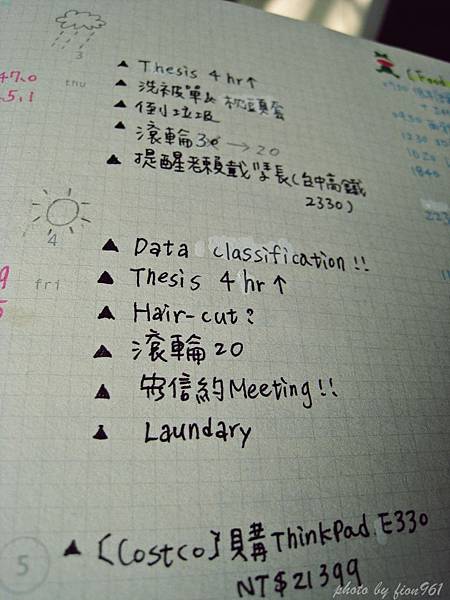 3
thu
47.0
5.1
▲ Thesis 4 hr↑
▲ 洗被單& 枕頭套
▲ 倒垃圾
▲ 滾輪30 → 20
▲ 提醒老賴載學長(台中高鐵
2330)
4
fri
▲ Data classification!!
▲ Thesis 4 hr↑
▲ Hair-cut?
▲ 滾輪 20
▲ 安信約Meeting!!
▲ Laundary
5
▲ [Costco]購ThinkPad E330
NT$21399
(Food
1230
1840
photo by fion961